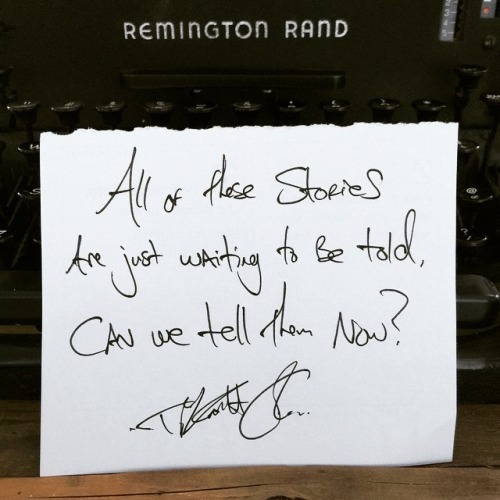 REMINGTON RAND
All of these Stories
Are just waiting to Be told,
CAN we tell them Now?